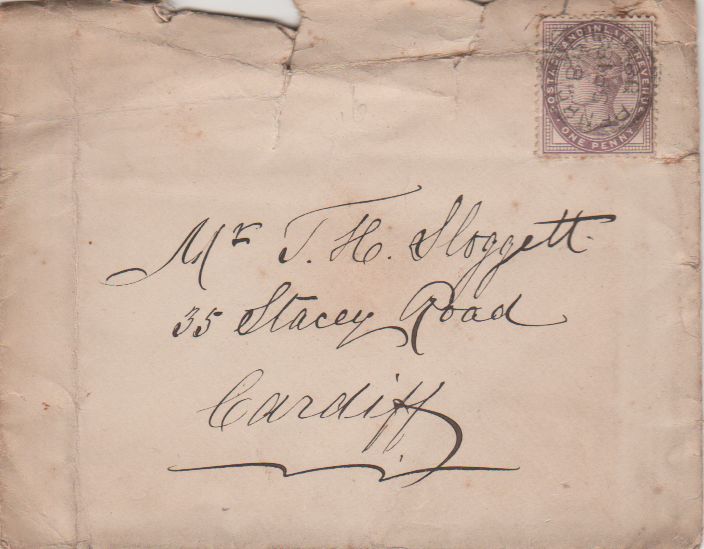 POSTAGE AND INLAND REVENUE
ONE PENNY
Mr T. H. Sloggett
35 Stacey Road
Cardiff